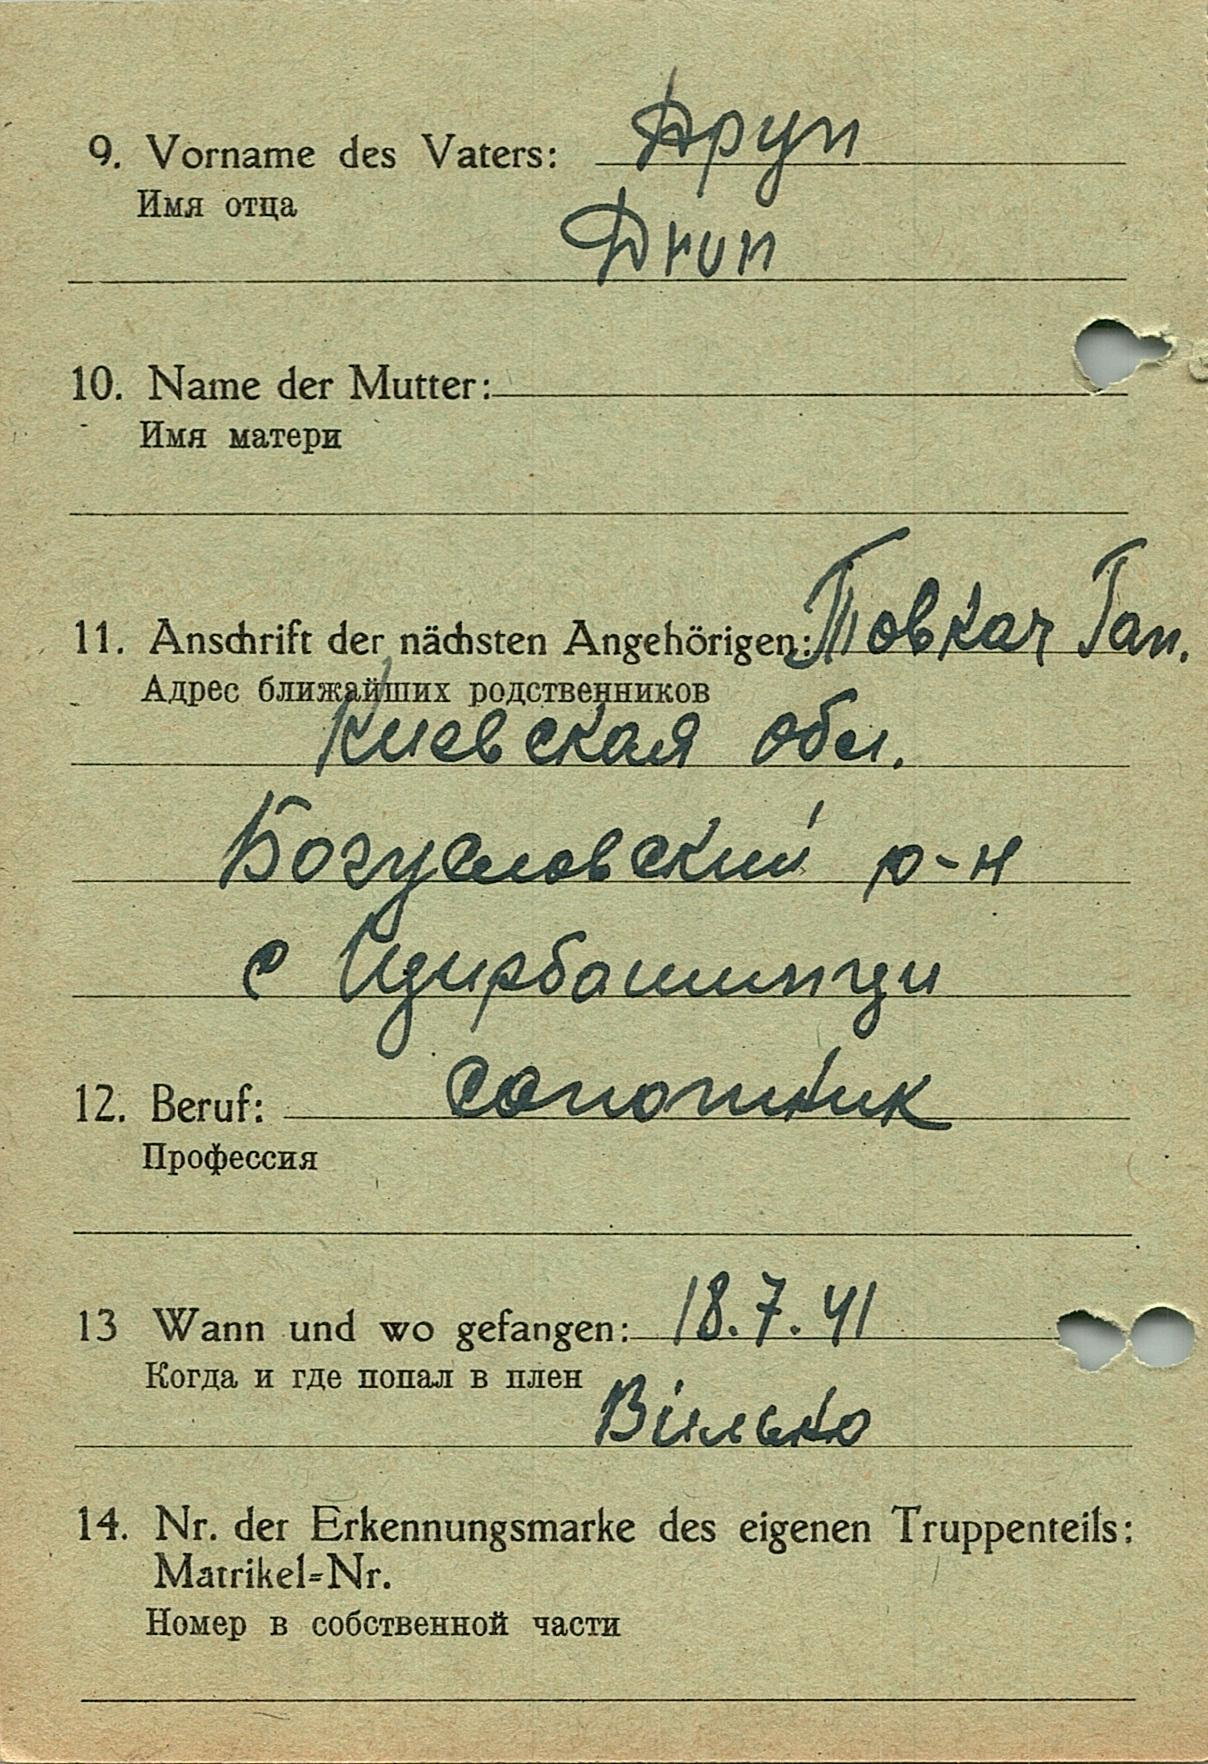 9. Vorname des Vaters: Друп
Имя отца
Drun
10. Name der Mutter:
Имя матери
11. Anschrift der nächsten Angehörigen: Товкач Гап.
Адрес ближайших родственников
Киевская обл.
Богусловский р-н
с
12. Beruf: сапотник
Профессия
13 Wann und wo gefangen: 18.7.41
Когда и где попал в плен
Вілько
14. Nr. der Erkennungsmarke des eigenen Truppenteils:
Matrikel-Nr.
Номер в собственной части